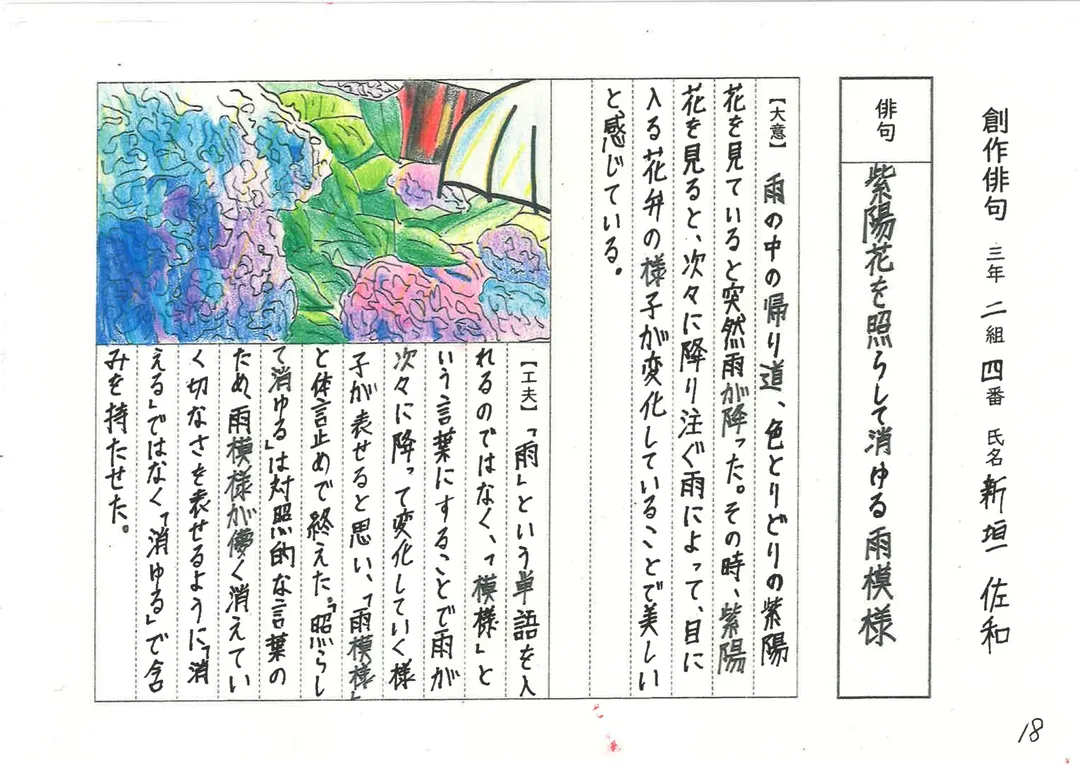 創作俳句 三年 二組 四番 氏名 新垣 佐和
俳句 紫陽花を照らして消ゆる雨模様
【大意】 雨の中の帰り道、色とりどりの紫陽
花を見ていると突然雨が降った。その時、紫陽
花を見ると、次々に降り注ぐ雨によって、目に
入る花弁の様子が変化していることで美しい
と感じている。
【工夫】「雨」という単語を入
れるのではなく、「模様」と
いう言葉にすることで雨が
次々に降って変化していく様
子が表せると思い、「雨模様」
と体言止めで終えた。「照らし
て消ゆる」は対照的な言葉の
ため、雨模様が儚く消えてい
く切なさを表せるように「消
える」ではなく「消ゆる」で含
みを持たせた。
18